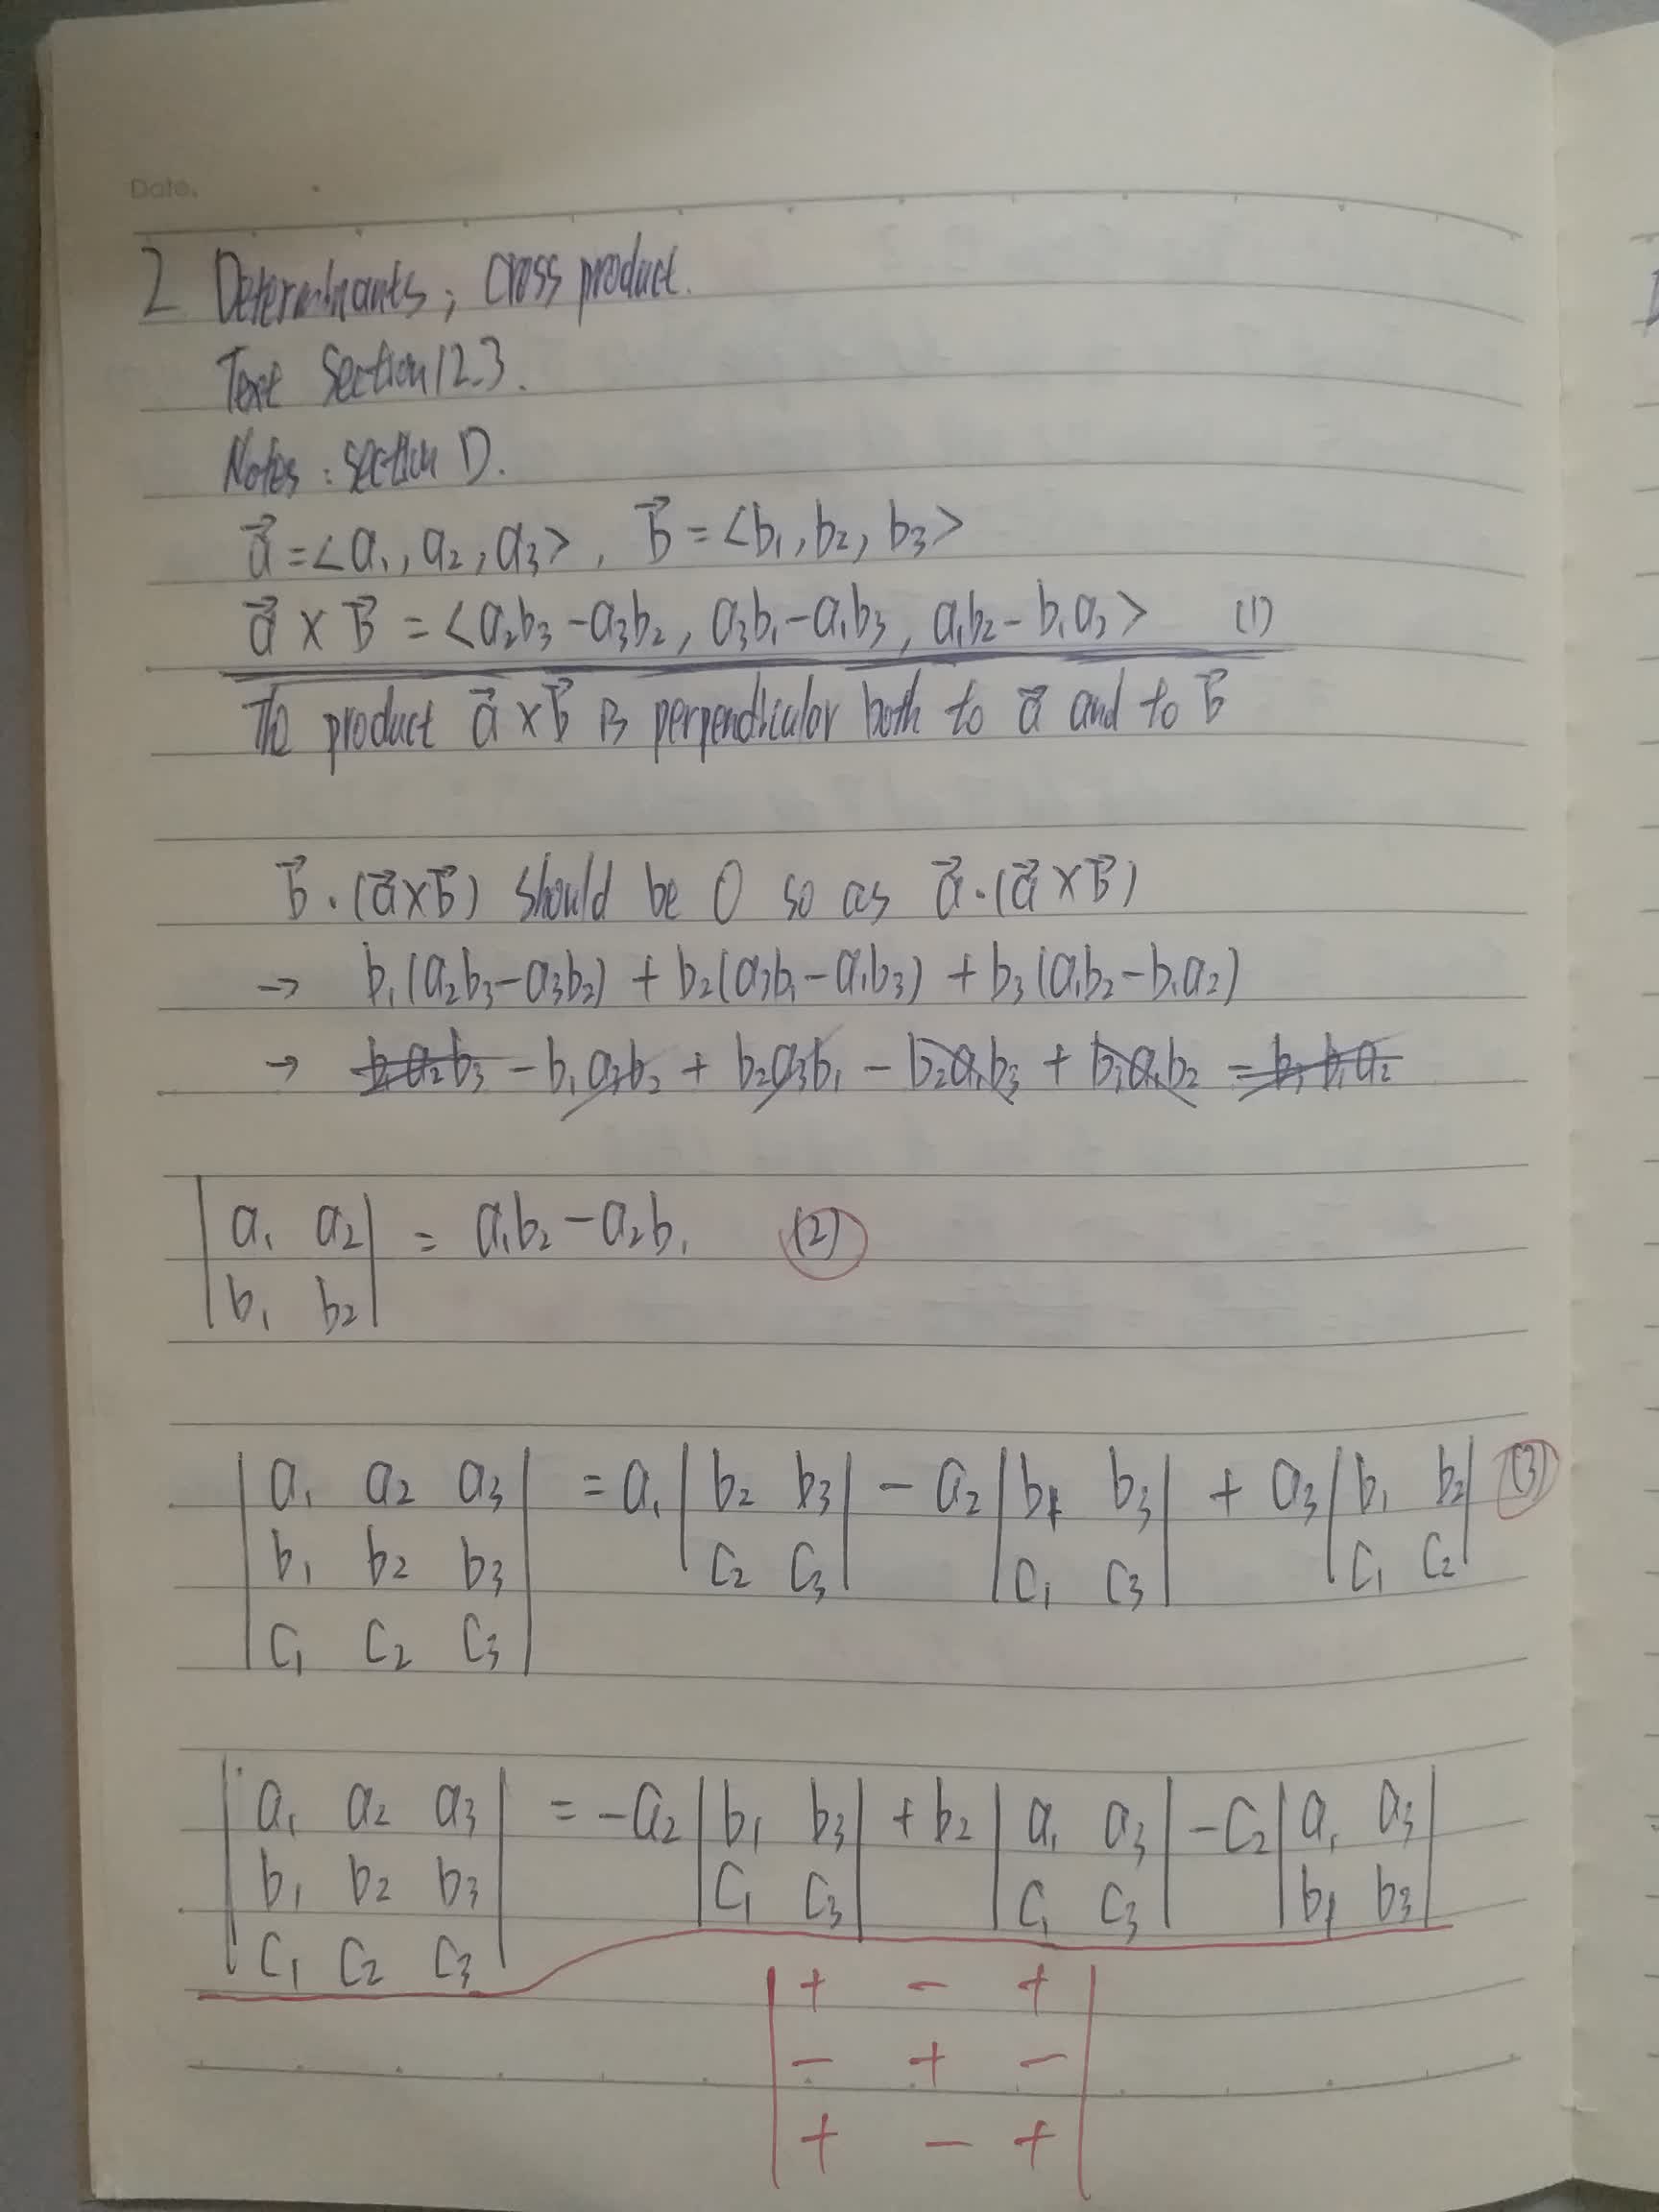 Date.
2 Determinants; Cross product.
Text Section 12.3.
Notes: section D.
a⃗ = <a₁, a₂, a₃>, b⃗ = <b₁, b₂, b₃>
a⃗ × b⃗ = <a₂b₃ - a₃b₂, a₃b₁ - a₁b₃, a₁b₂ - b₁a₂> (1)
The product a⃗ × b⃗ is perpendicular both to a⃗ and to b⃗
b⃗ · (a⃗ × b⃗) should be 0 so as a⃗ · (a⃗ × b⃗)
→ b₁(a₂b₃ - a₃b₂) + b₂(a₃b₁ - a₁b₃) + b₃(a₁b₂ - b₁a₂)
→ b₁a₂b₃ - b₁a₃b₂ + b₂a₃b₁ - b₂a₁b₃ + b₃a₁b₂ - b₃b₁a₂
|a₁ a₂| = a₁b₂ - a₂b₁ (2)
|b₁ b₂|
|a₁ a₂ a₃| = a₁|b₂ b₃| - a₂|b₁ b₃| + a₃|b₁ b₂| (3)
|b₁ b₂ b₃| |c₂ c₃| |c₁ c₃| |c₁ c₂|
|c₁ c₂ c₃|
|a₁ a₂ a₃| = -a₂|b₁ b₃| + b₂|a₁ a₃| - c₂|a₁ a₃|
|b₁ b₂ b₃| |c₁ c₃| |c₁ c₃| |b₁ b₃|
|c₁ c₂ c₃|
|+ - +|
|- + -|
|+ - +|